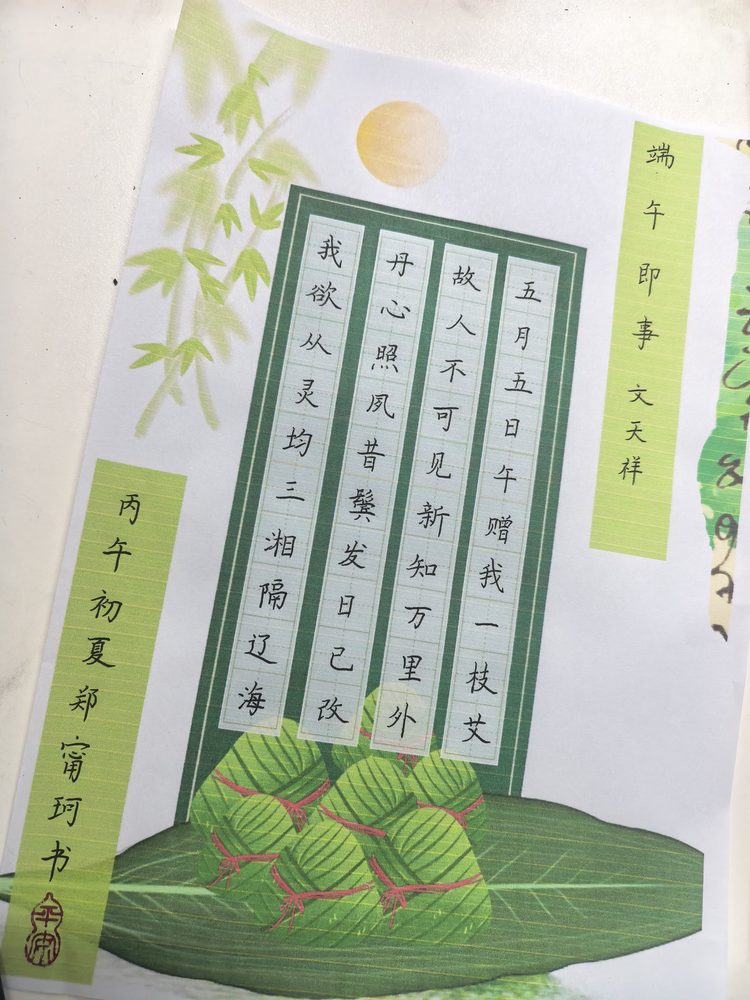 端午即事 文天祥
五月五日午赠我一枝艾
故人不可见新知万里外
丹心照夙昔鬓发日已改
我欲从灵均三湘隔辽海
丙午初夏郑甯珂书
平安